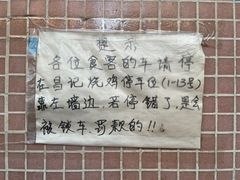 提示
各位食客的车请停
在昌记烧鸡停车位(1-13号)
靠左墙边,若停错了,是会
被锁车罚款的!!